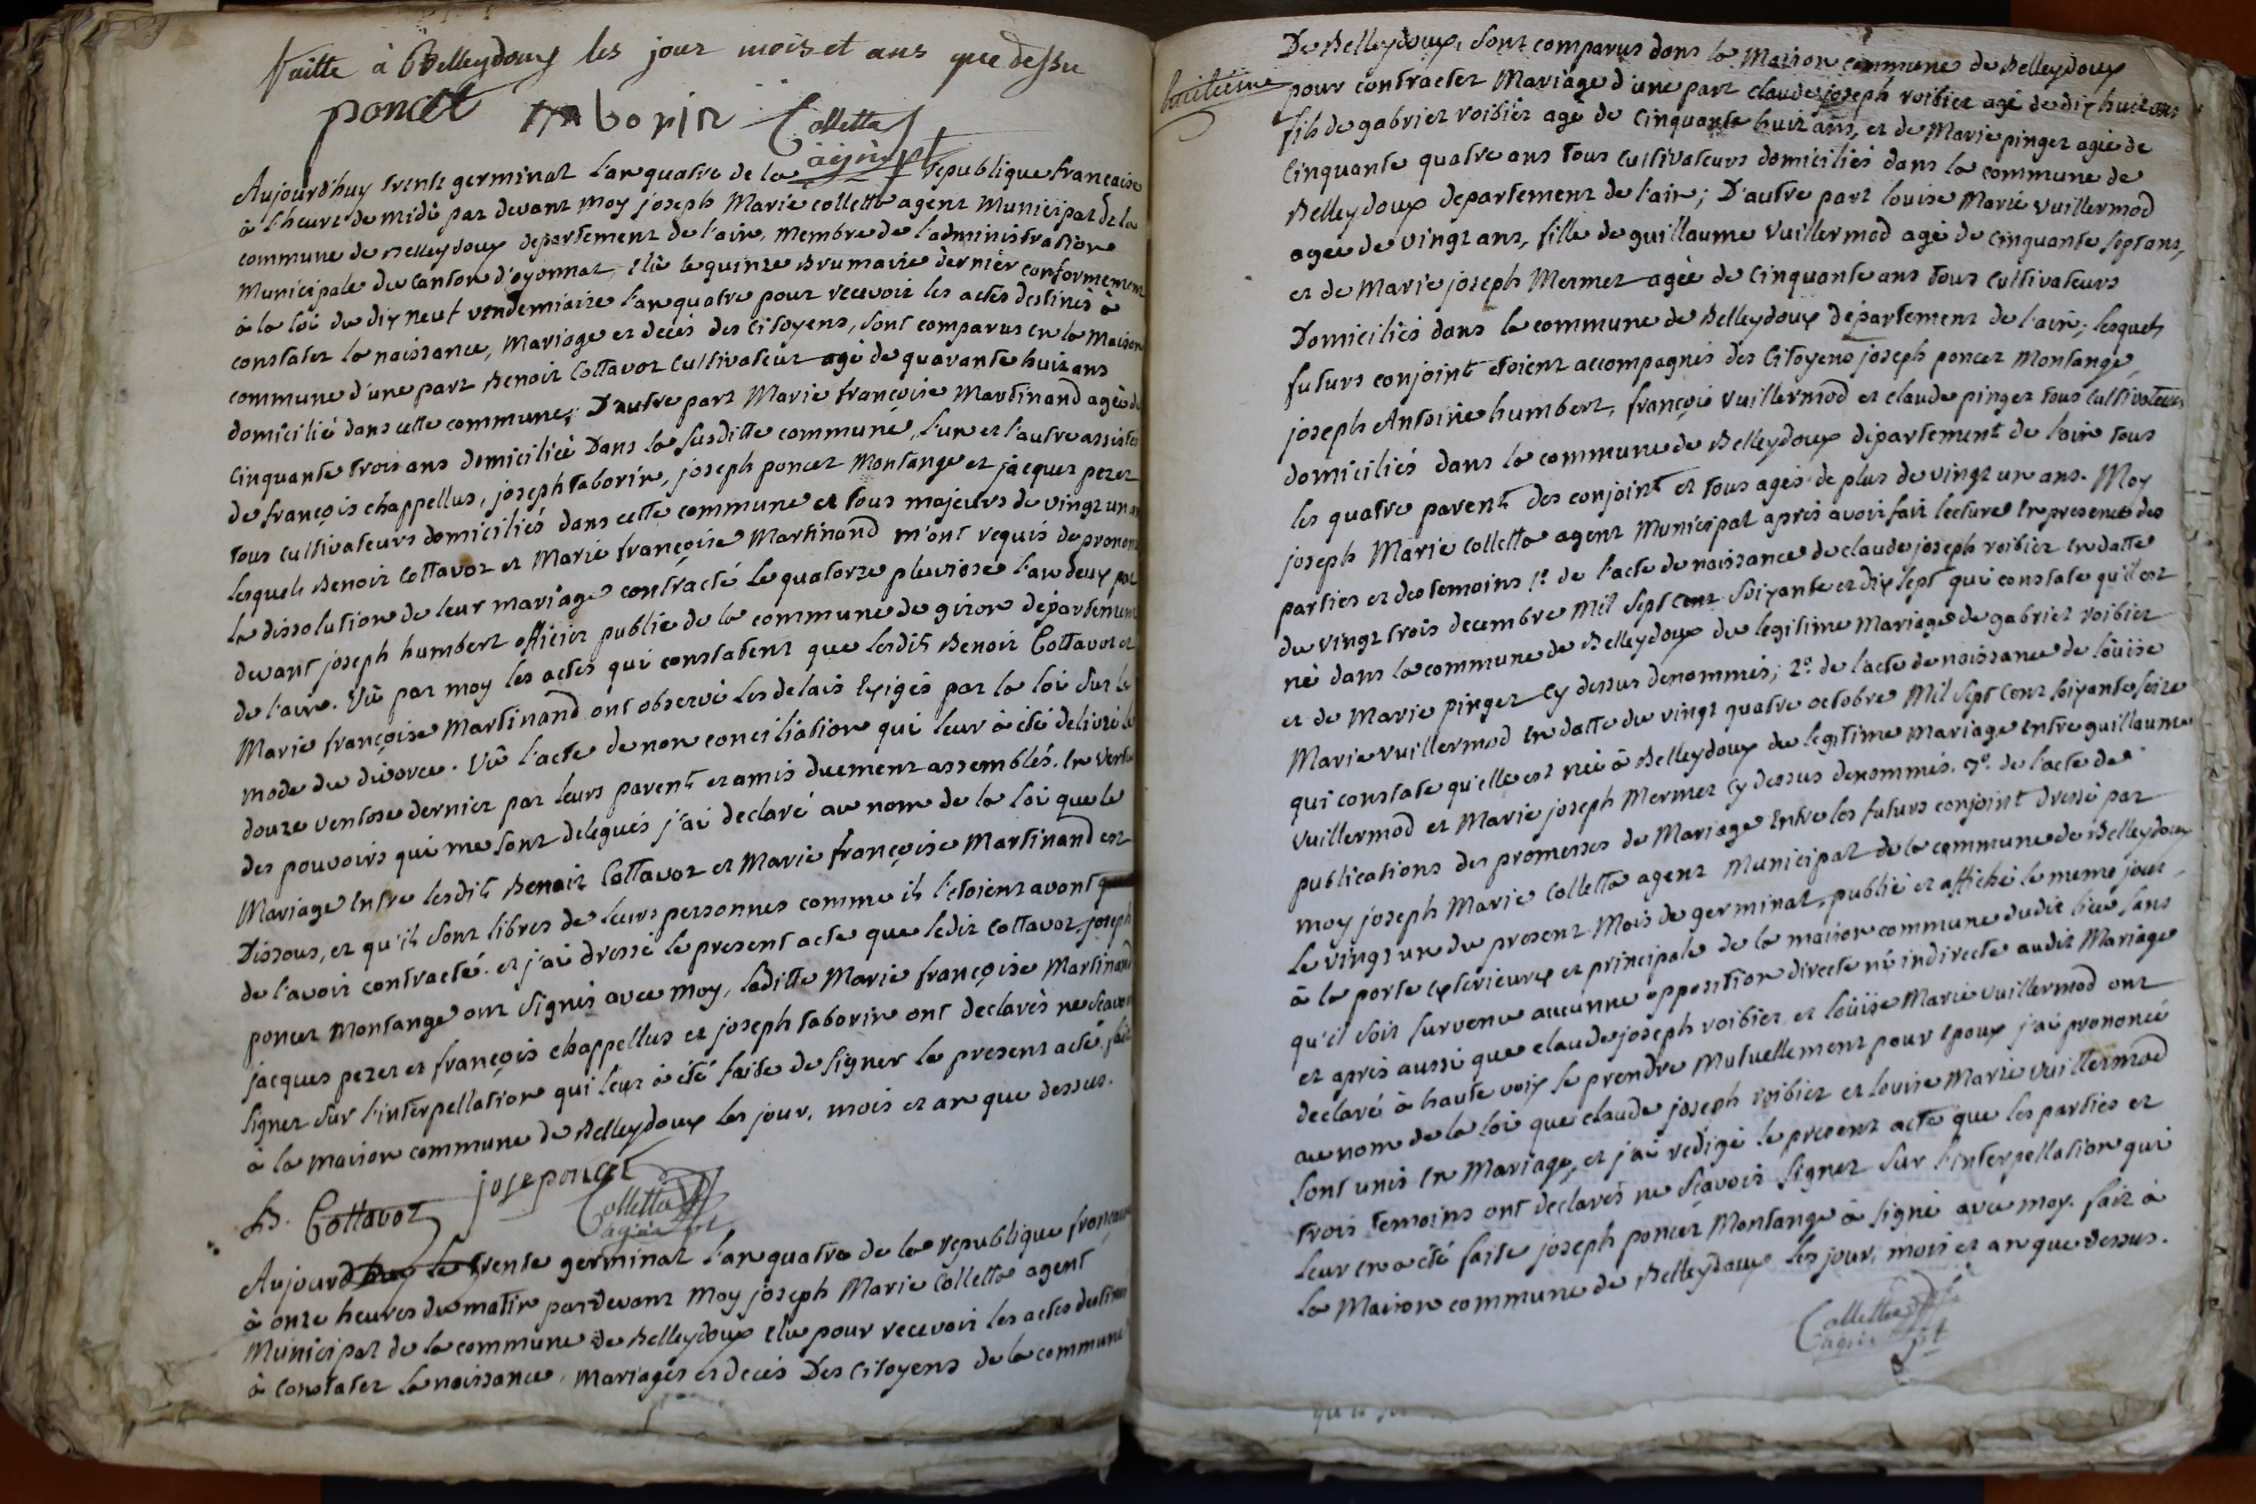 faitte à Belleydoux les jour mois et ans que dessu
poncet taborin Colletta
agent
Aujourd'huy trente germinal l'an quatre de la republique francaise
à l'heure de midi par devant moy joseph Marie colletta agent Municipal de la
commune de Belleydoux departement de l'ain, membre de l'administration
Municipale du Canton d'oyonnat, elû le quinze Brumaire dernier conformement
à la loi du dix neuf vendemiaire l'an quatre pour recevoir les actes destinés à
constater la naissance, Mariage et decès des Citoyens, sont comparus en la Maison
commune d'une part Benoit Cottavoz Cultivateur agé de quarante huit ans
domicilié dans cette commune; D'autre part Marie françoise Martinand agée de
Cinquante trois ans domiciliée Dans la susditte commune, l'un et l'autre assistés
de françois chappellus, joseph taborin, joseph poncet Montange et jacques perez
tous cultivateurs domiciliés dans cette commune et tous majeurs de vingt un an
lesquels Benoit Cottavoz et Marie françoise Martinand m'ont requis de prononc
la dissolution de leur mariage contracté le quatorze pluviose l'an deux par
devant joseph humbert officier public de la commune de giron departement
de l'ain. Vû par moy les actes qui constatent que lesdits Benoit Cottavoz et
Marie françoise Martinand ont observé les delais Exigés par la loi sur le
mode du divorce. Vû l'acte de non conciliation qui leur à été delivré le
douze ventose dernier par leurs parents et amis duement assemblés. En vertu
des pouvoirs qui me sont delegués j'ai declaré au nom de la loi que le
Mariage Entre lesdits Benoit Cottavoz et Marie françoise Martinand est
Dissous, et qu'ils sont libres de leurs personnes comme ils l'etoient avant que
de l'avoir contracté. et j'ai dressé le present acte que ledit Cottavoz, joseph
poncet Montange ont signés avec moy, laditte Marie françoise Martinand
jacques perez et françois chappellus et joseph taborin ont declarés ne scavoir
signer sur l'interpellation qui leur à été faite de signer le present acte. fait
à la maison commune de Belleydoux les jour, mois et an que dessus.
B. Cottavoz jose poncet Colletta
agent
Aujourd'huy le trente germinal l'an quatre de la republique francaise
à onze heures du matin par devant moy joseph Marie Colletta agent
Municipal de la commune de Belleydoux elu pour recevoir les actes destinés
à Constater la naissance, mariages et decès Des Citoyens de la commune
De Belleydoux, sont comparus dans la Maison commune de Belleydoux
huitieme
pour contracter Mariage d'une part claude joseph roibier agé de dix huit ans
fils de gabriel roibier agé de Cinquante huit ans, et de Marie pinget agée de
Cinquante quatre ans tous Cultivateurs domiciliés dans la commune de
Belleydoux departement de l'ain; D'autre part louise Marie Vuillermod
agée de vingt ans, fille de guillaume Vuillermod agé de cinquante sept ans,
et de Marie joseph Mermet agée de Cinquante ans tous Cultivateurs
Domiciliés dans la commune de Belleydoux departement de l'ain; lesquels
futurs conjoint etoient accompagnés des Citoyens joseph poncet Montange,
joseph Antoine humbert, françois Vuillermod et claude pinget tous Cultivateurs
domiciliés dans la commune de Belleydoux departement de l'ain tous
les quatre parents des conjoint et tous agés de plus de vingt un ans. Moy
joseph Marie Colletta agent Municipal après avoir fait lecture En presence des
parties et des temoins 1° de l'acte de naissance de claude joseph roibier en datte
du vingt trois decembre Mil sept cent soixante et dix sept qui constate qu'il est
né dans la commune de Belleydoux du legitime Mariage de gabriel roibier
et de Marie pinget Cy dessus denommés; 2° de l'acte de naissance de loüise
Marie Vuillermod En datte du vingt quatre octobre Mil sept cent soixante seize
qui constate qu'elle est née à Belleydoux du legitime Mariage Entre guillaume
Vuillermod et Marie joseph Mermet Cy dessus denommés. 3° de l'acte de
publications des promesses de Mariage Entre les futurs conjoint dressé par
moy joseph Marie Colletta agent Municipal de la commune de Belleydoux
le vingt un du present Mois de germinal, publié et affiché le meme jour
à la porte exterieure et principale de la maison commune dudit lieu sans
qu'il soit survenu aucunne opposition directe ni indirecte audit Mariage
et après aussi que claude joseph roibier et loüise Marie Vuillermod ont
declaré à haute voix se prendre Mutuellement pour Epoux j'ai prononcé
au nom de la loi que claude joseph roibier et louise Marie Vuillermod
sont unis En Mariage, et j'ai redigé le present acte que les parties et
trois temoins ont declarés ne scavoir signer sur l'interpellation qui
leur en a été faite joseph poncet Montange à signé avec moy. fait à
la Maison commune de Belleydoux les jour, mois et an que dessus.
Colletta
agent